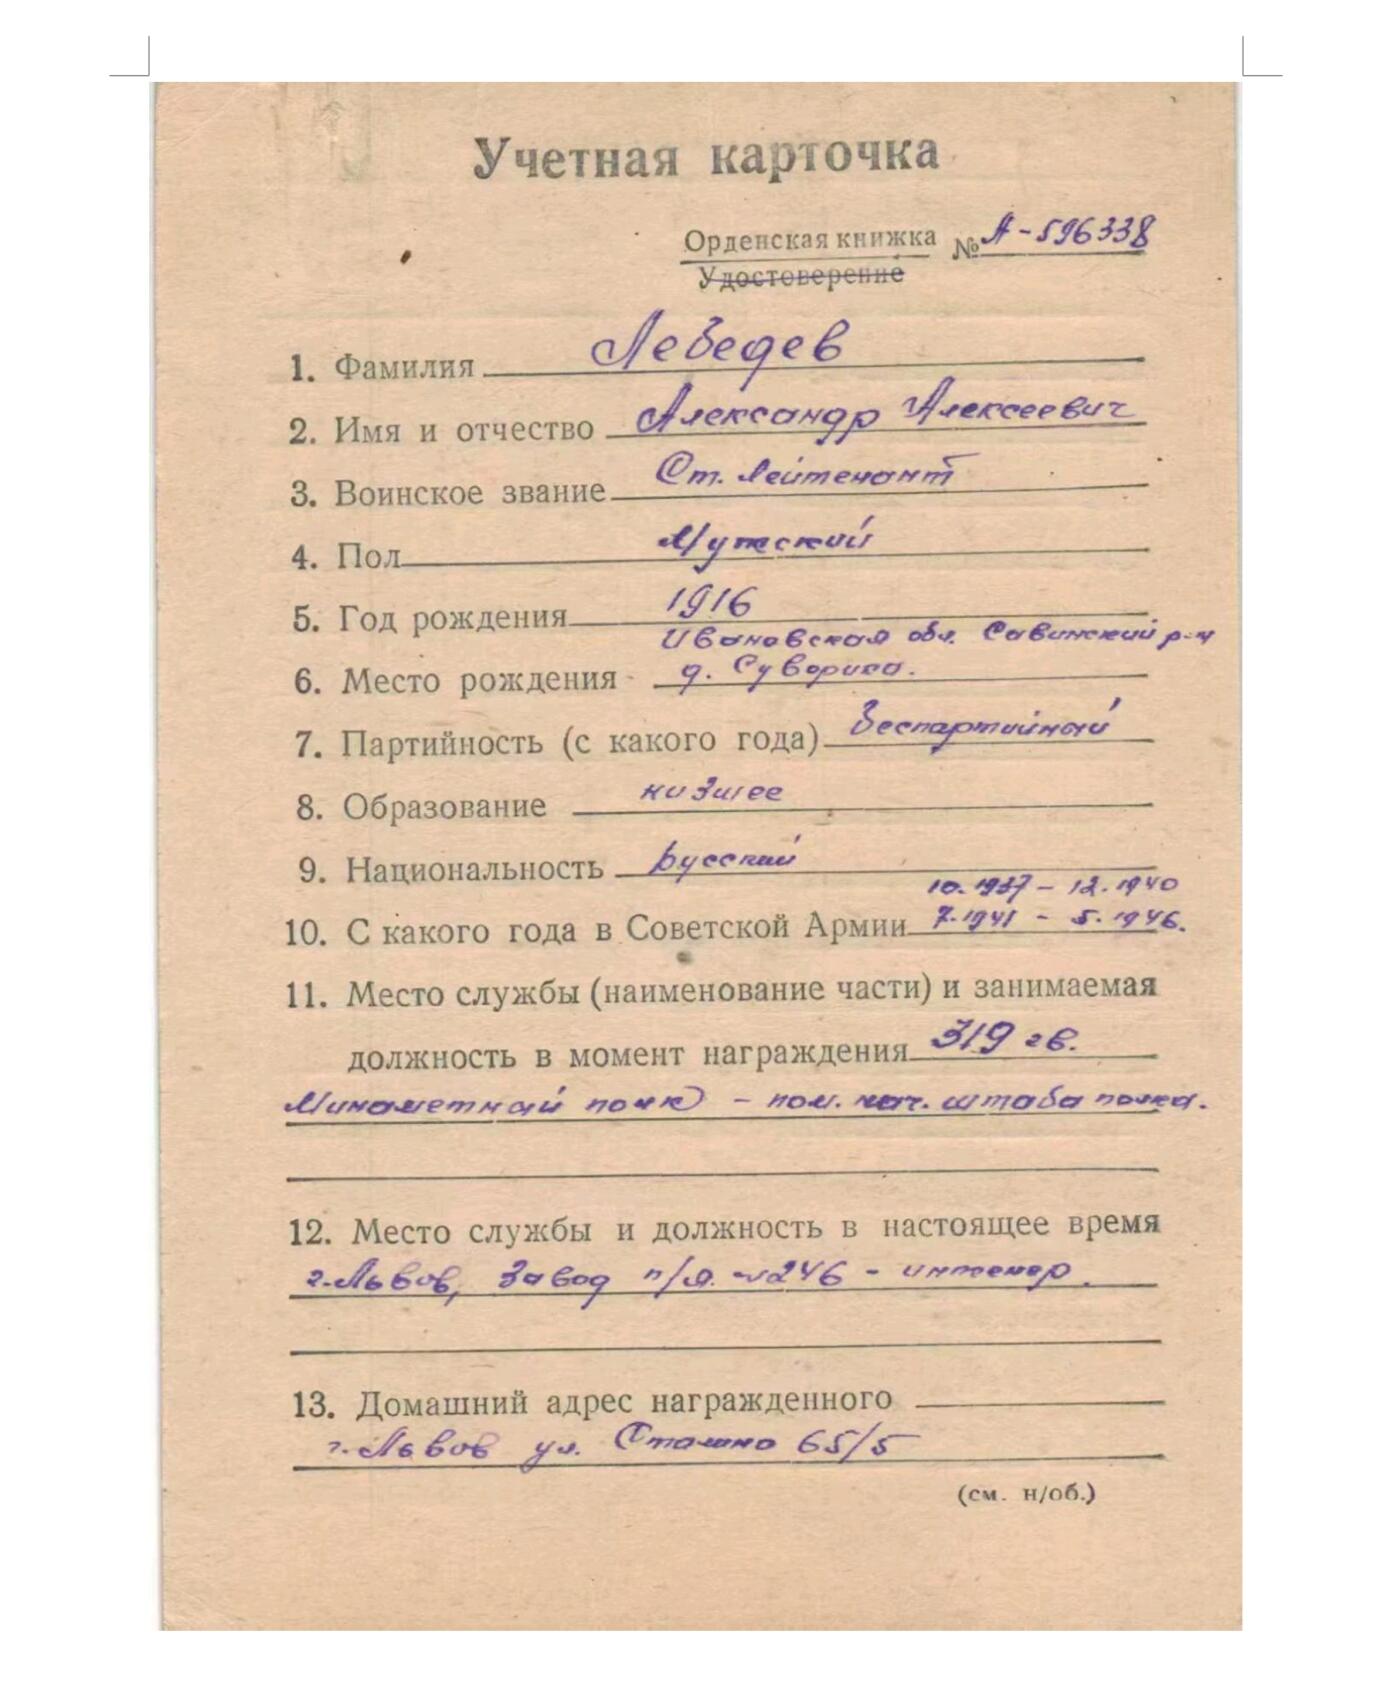 Учетная карточка
Орденская книжка № А-596338
Удостоверение
1. Фамилия Лебедев
2. Имя и отчество Александр Алексеевич
3. Воинское звание Ст. Лейтенант
4. Пол Мужской
5. Год рождения 1916
Ивановская обл. Савинский р-н
6. Место рождения д. Сувориха.
7. Партийность (с какого года) Беспартийный
8. Образование низшее
9. Национальность русский
10.1937 - 12.1940
10. С какого года в Советской Армии 7.1941 - 5.1946.
11. Место службы (наименование части) и занимаемая
должность в момент награждения 319 гв.
Минометный полк - пом. нач. штаба полка.
12. Место службы и должность в настоящее время
г. Львов, Завод п/я. №246 - инженер.
13. Домашний адрес награжденного
г. Львов ул. Сталина 65/5
(см. н/об.)